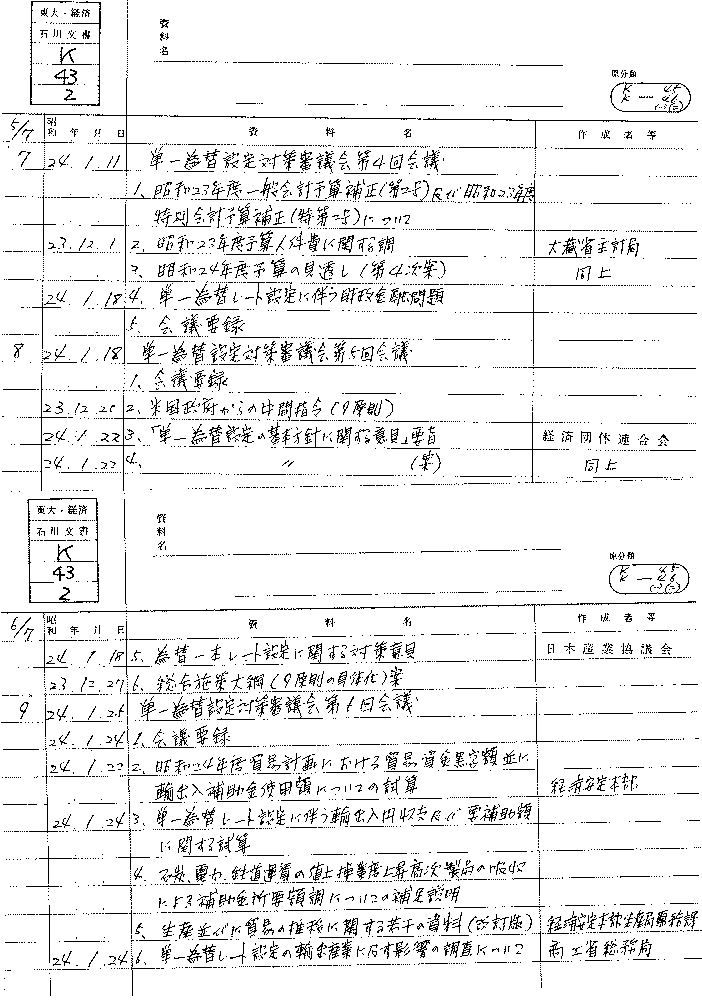 東大・経済
石川文書
K
43
2
資料名
原分類
K 45
K-46
5/7
昭和 年 月 日 資料名 作成者等
7 24.1.11 単一為替設定対策審議会第4回会議
1、昭和23年度一般会計予算補正(第2号)及び昭和23年度
特別会計予算補正(特第2号)について
23.12.1 2、昭和23年度予算人件費に関する調 大蔵省主計局
3、昭和24年度予算の見透し(第4次案) 同上
24.1.18 4、単一為替レート設定に伴う財政金融問題
5、会議要録
8 24.1.18 単一為替設定対策審議会第5回会議
1、会議要録
2、米国政府からの中間指令(9原則)
24.1.22 3、「単一為替設定の基本方針に関する意見」要旨 経済団体連合会
24.1.22 4、 〃 (案) 同上
東大・経済
石川文書
K
43
2
資料名
原分類
K 45
K-46
6/7
昭和 年 月 日 資料名 作成者等
24.1.18 5、為替一本レート設定に関する対策意見 日本産業協議会
23.12.27 6、総合施策大綱(9原則の具体化)案
9 24.1.25 単一為替設定対策審議会第6回会議
24.1.24 1、会議要録
24.1.22 2、昭和24年度貿易計画における貿易資金黒字額並に
輸出入補助金使用額についての試算 経済安定本部
24.1.24 3、単一為替レート設定に伴う輸出入円収支及び要補助額
に関する試算
4、石炭、電力、鉄道運賃の値上操業度上昇高次製品の吸収
による補助金所要額調についての補足説明
5、生産並びに貿易の推移に関する若干の資料(改訂版) 経済安定本部生産局
24.1.24 6、単一為替レート設定の輸出産業に及す影響の調査について 商工省総務局